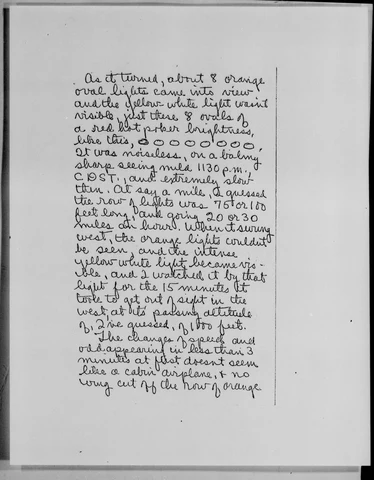 As it turned, about 8 orange
oval lights came into view
and the yellow white light wasnt
visible, just these 8 ovals of
a red hot poker brightness,
like this, O O O O O O O O.
It was noiseless, on a balmy
sharp seeing mild 1130 p.m.,
C D S T., and extremely slow
then. At say a mile, I guessed
the row of lights was 75 or 100
feet long and going 20 or 30
miles an hour. When it swung
west, the orange lights couldn't
be seen, and the intense
yellow white light became vis-
ible, and I watched it by that
light for the 15 minutes it
took to get out of sight in the
west, at its passing altitude
of, I've guessed, of 1000 feet.
The changes of speed and
odd appearing in less than 3
minutes at first doesnt seem
like a cabin airplane, & no
wing cut off the row of orange